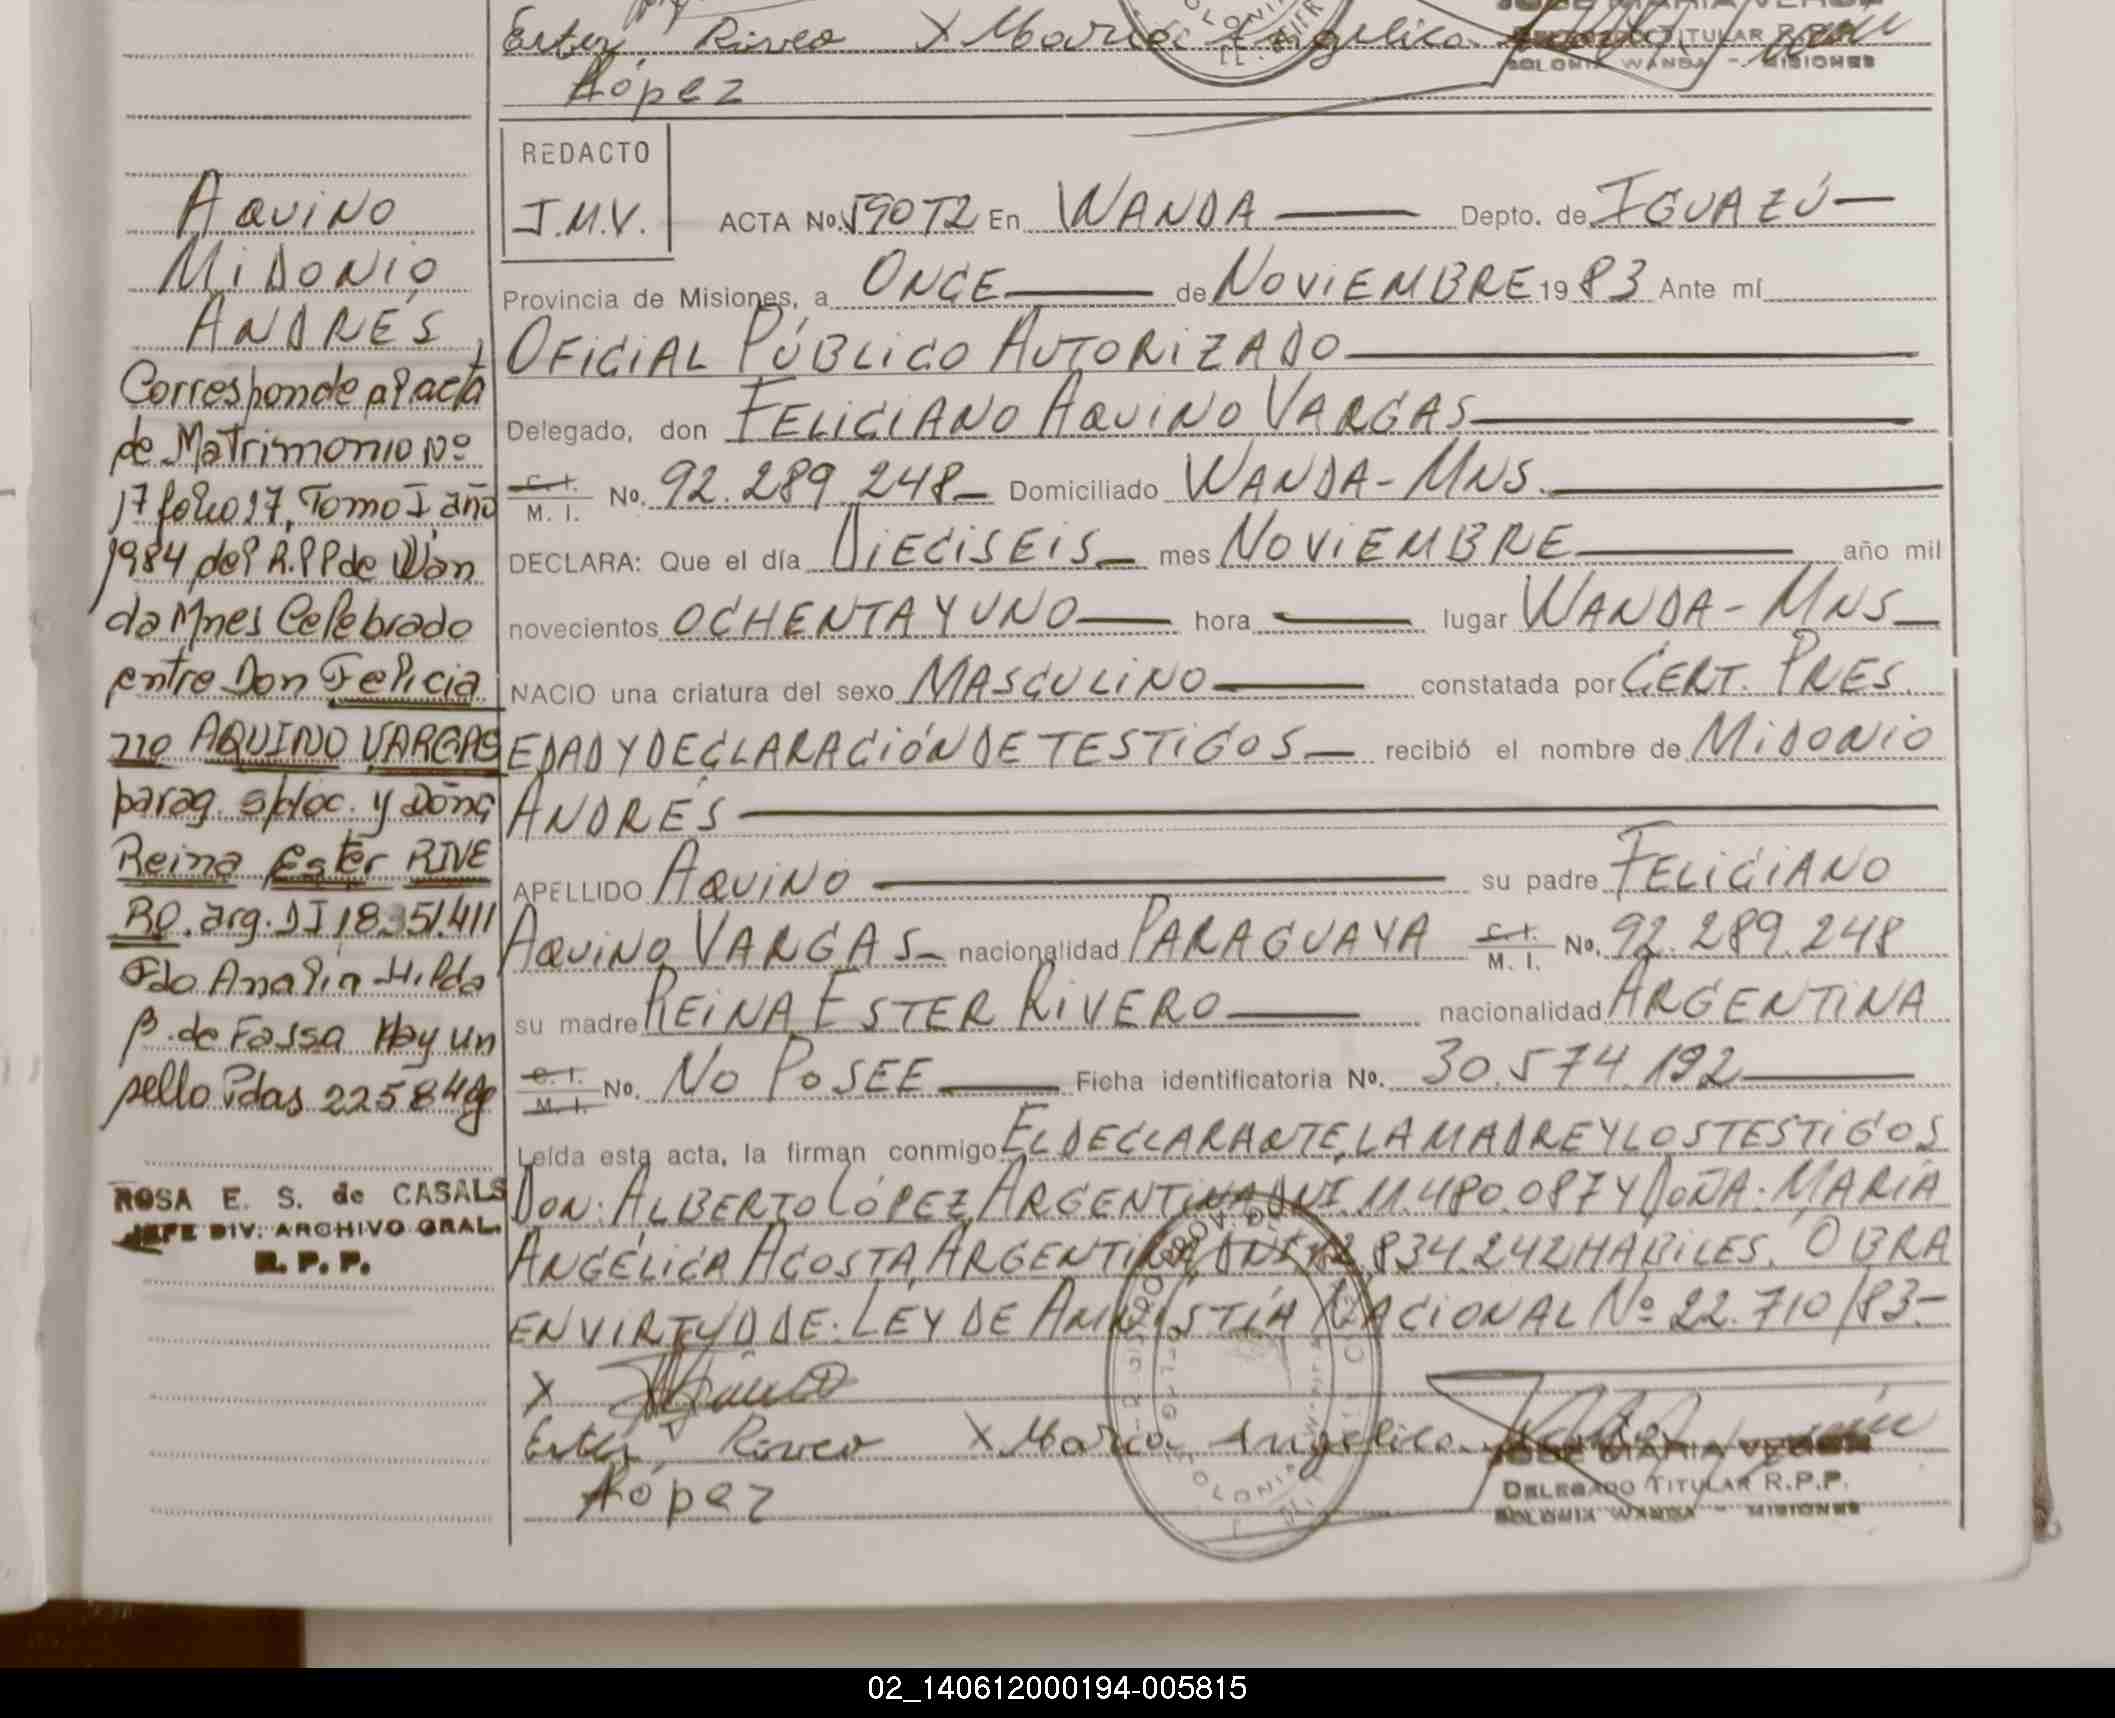 Ester Rivero X Maria Angelica
López
TITULAR R.P.P.
COLONIA WANDA - MISIONES
REDACTO
J.M.V.
ACTA No. 590T2 En WANDA Depto. de IGUAZÚ
Provincia de Misiones, a ONCE de NOVIEMBRE 19 83 Ante mí
OFICIAL PÚBLICO AUTORIZADO
Delegado, don FELICIANO AQUINO VARGAS
C. I. M. I. No. 92.289.248 Domiciliado WANDA - MNS.
DECLARA: Que el día DIECISEIS mes NOVIEMBRE año mil
novecientos OCHENTA Y UNO hora lugar WANDA - MNS
NACIO una criatura del sexo MASCULINO constatada por CERT. PRES.
EDAD Y DECLARACIÓN DE TESTIGOS recibió el nombre de MIDONIO
ANDRÉS
APELLIDO AQUINO su padre FELICIANO
AQUINO VARGAS nacionalidad PARAGUAYA C. I. M. I. No. 92.289.248
su madre REINA ESTER RIVERO nacionalidad ARGENTINA
C. I. M. I. No. NO POSEE Ficha identificatoria No. 30.574.192
Leída esta acta, la firman conmigo EL DECLARANTE, LA MADRE Y LOS TESTIGOS
DON: ALBERTO LÓPEZ ARGENTINA DNI. 11.480.087 Y DOÑA: MARÍA
ANGÉLICA ACOSTA, ARGENTINA DNI 12.834.242 HABILES. OBRA
EN VIRTUD DE: LEY DE AMNISTÍA NACIONAL Nº 22.710/83.-
X
Ester Rivero X Maria Angelica
López
JOSE MARIA
DELEGADO TITULAR R.P.P.
COLONIA WANDA - MISIONES
AQUINO
MIDONIO
ANDRÉS
Corresponde al acta
de Matrimonio Nº
17 folio 17, Tomo I año
1984 del R.P.P de Wan
da Mnes Celebrado
entre Don Felicia
no AQUINO VARGAS
parag. sploc. y Doña
Reina Ester RIVE
RO. arg. DI 18.351.411
Fdo Analia Hilda
B. de Fassa Hay un
sello Pdas 22584
ROSA E. S. de CASALS
JEFE DIV. ARCHIVO GRAL.
R. P. P.
02_140612000194-005815